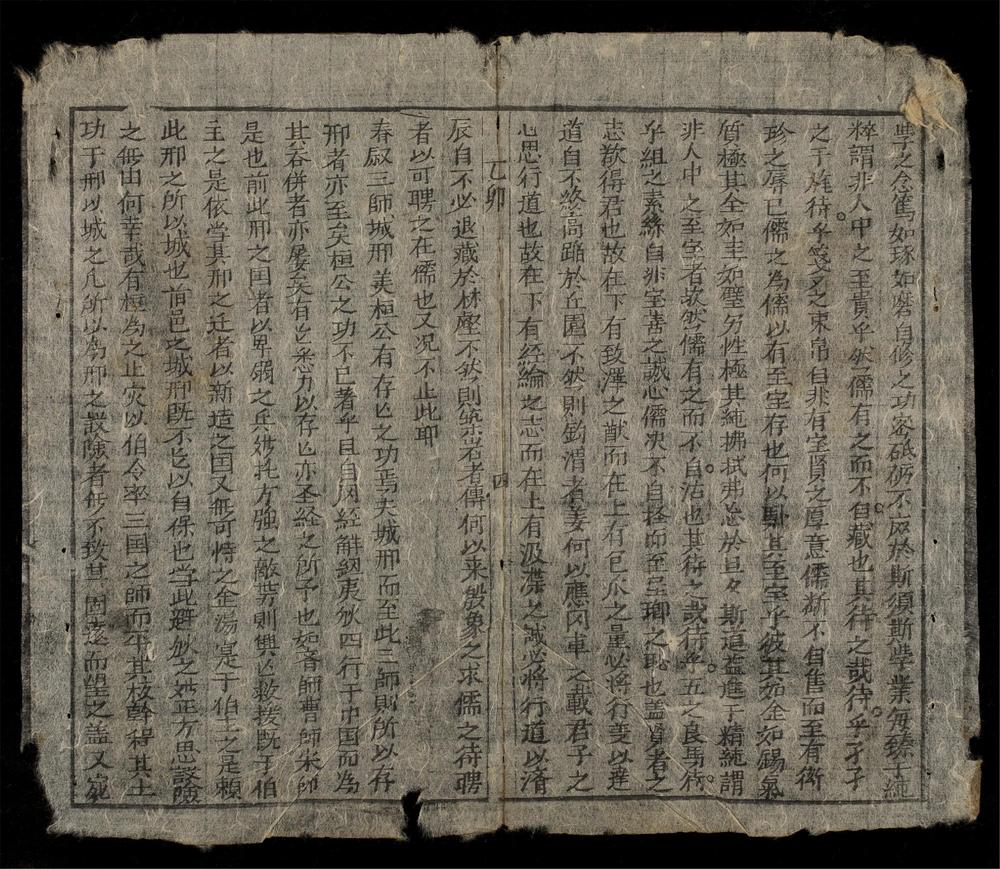 學之念篤如琢如磨自修之功密砥砺不间於斯須斯斈業每臻于純
粹謂非人中之至貴乎然儒有之而不自藏也其待之哉待乎孑孑
之于旌待乎戔戔之束帛自非有宝賢之厚意儒断不自售而至有衒
珍之辱已儒之為儒以有至宝存也何以馴其至宝乎彼其如金如錫氣
質極其全如圭如璧努性極其純拂拭弗怠於旦夕斯道益進于精純謂
非人中之至宝者欤然儒有之而不自沽也其待之哉待乎五之良馬待
乎組之素絲自非宝善之誠心儒决不自拴而至呈瑯之恥也盖賢者之
志欲得君也故在下有致澤之猷而在上有包瓜之量必将行变以達
道自不終高蹈於丘園不然則釣渭者姜何以應冈車之載君子之
心思行道也故在下有経綸之志而在上有汲渫之誠必將行道以済
辰自不必退藏於林壑不然則築岩者傳何以来殷象之求儒之待聘
者以可聘之在儒也又况不止此耶
乙卯
四
春叙三師城邢美桓公有存亡之功焉夫城邢而至此三師則所以存
邢者亦至矣桓公之功不已著乎且自风経解紐夷狄四行于中国而為
其吞併者亦屡矣有亡悉力以存亡亦圣経之所予也如斉師曹師宋師
是也前此邢之国者以卑弱之兵継托方強之敵势則興亡救援既于伯
主之是依学其邢之迁者以新造之国又無可恃之金湯寔于伯主之是頼
此邢之所以城也旹邑之城邢既不足以自保也当此避狄之灶正方思設險
之無由何幸哉有桓為之止灾以伯令率三国之師而平其核幹程其土
功于邢以城之凡所以為邢之設險者無不致其固逶而望之盖又宛